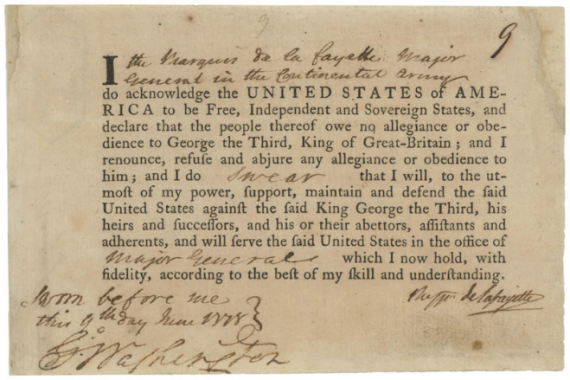 9
9
I the Marquis de la fayette Major
General in the Continental Army
do acknowledge the UNITED STATES of AME-
RICA to be Free, Independent and Sovereign States, and
declare that the people thereof owe no allegiance or obe-
dience to George the Third, King of Great-Britain; and I
renounce, refuſe and abjure any allegiance or obedience to
him; and I do swear that I will, to the ut-
moſt of my power, ſupport, maintain and defend the ſaid
United States againſt the ſaid King George the Third, his
heirs and ſucceſſors, and his or their abettors, aſſiſtants and
adherents, and will ſerve the ſaid United States in the office of
Major General which I now hold, with
fidelity, according to the beſt of my ſkill and underſtanding.
Sworn before me
this 9th day June 1778
de Lafayette
Go: Washington